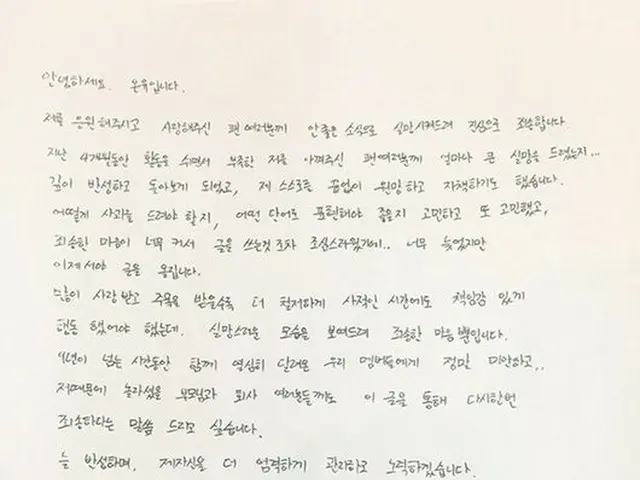 안녕하세요. 온유입니다.
저를 응원해주시고 사랑해주신 팬 여러분께 안좋은 소식으로 실망시켜드려 진심으로 죄송합니다.
지난 4개월동안 활동을 쉬면서 부족한 저를 아껴주신 팬여러분께 얼마나 큰 실망을 드렸는지...
깊이 반성하고 돌아보게 되었고, 제 스스로를 끊임없이 원망하고 자책하기도 했습니다.
어떻게 사과를 드려야 할지, 어떤 단어로 표현해야 좋을지 고민하고 또 고민했고,
죄송한 마음이 너무 커서 글을 쓰는것 조차 조심스러웠기에.. 너무 늦었지만
이제서야 글을 올립니다.
많이 사랑 받고 주목을 받을수록 더 철저하게 사적인 시간에도 책임감 있게
행동 했어야 했는데. 실망스러운 모습을 보여드려 죄송한 마음 뿐입니다.
9년이 넘는 시간동안 함께 열심히 달려온 우리 멤버들에게 정말 미안하고,.
저때문에 놀라셨을 부모님과 회사 여러분들께도 이 글을 통해 다시한번
죄송하다는 말씀 드리고 싶습니다.
늘 반성하며, 제자신을 더 엄격하게 관리하고 노력하겠습니다.